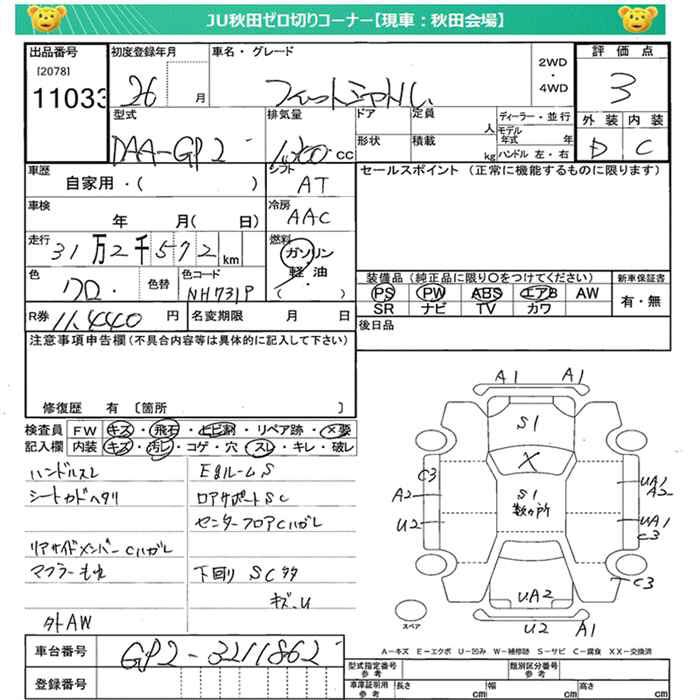 JU秋田ゼロ切りコーナー【現車：秋田会場】
出品番号
[2078]
11033
初度登録年月
26 月
車名・グレード
フィットシャトル
2WD
・
4WD
評価点
3
型式
DAA-GP2
排気量
1,300 cc
ドア
定員
人
形状
積載
kg
ディーラー・並行
モデル年式 年
ハンドル 左・右
外装 内装
D C
車歴
自家用・( )
シフト
AT
セールスポイント (正常に機能するものに限ります)
車検
年 月( 日)
冷房
AAC
走行
31万2千572km
燃料
ガソリン
軽・油
( )
色
クロ
色替
色コード
NH731P
装備品 (純正品に限り○をつけてください)
新車保証書
PS PW ABS エアB AW
SR ナビ TV カワ
有・無
R券
11,440 円
名変期限 月 日
後日品
注意事項申告欄(不具合内容等は具体的に記入して下さい)
修復歴 有 〔箇所 〕
検査員記入欄
FW キズ・飛石・ヒビ割・リペア跡・×要
内装 キズ・汚レ・コゲ・穴・スレ・キレ・破レ
ハンドルスレ
シートカドヘタリ
リアサイドメンバーCハガレ
マフラーもれ
外AW
EgルームS
ロアサポートSC
センターフロアCハガレ
下回り SC多
キズ・U
A1 A1
S1
X
C3
A2
U2
S1
数ヶ所
UA1
A2
UA1
C3
C3
UA2
U2 A1
スペア
A−キズ E−エクボ U−凹み W−補修跡 S−サビ C−腐食 XX−交換済
車台番号
GP2-3211862
登録番号
型式指定番号
参考
類別区分番号
参考
車庫証明用
参考
長さ cm
幅 cm
高さ cm